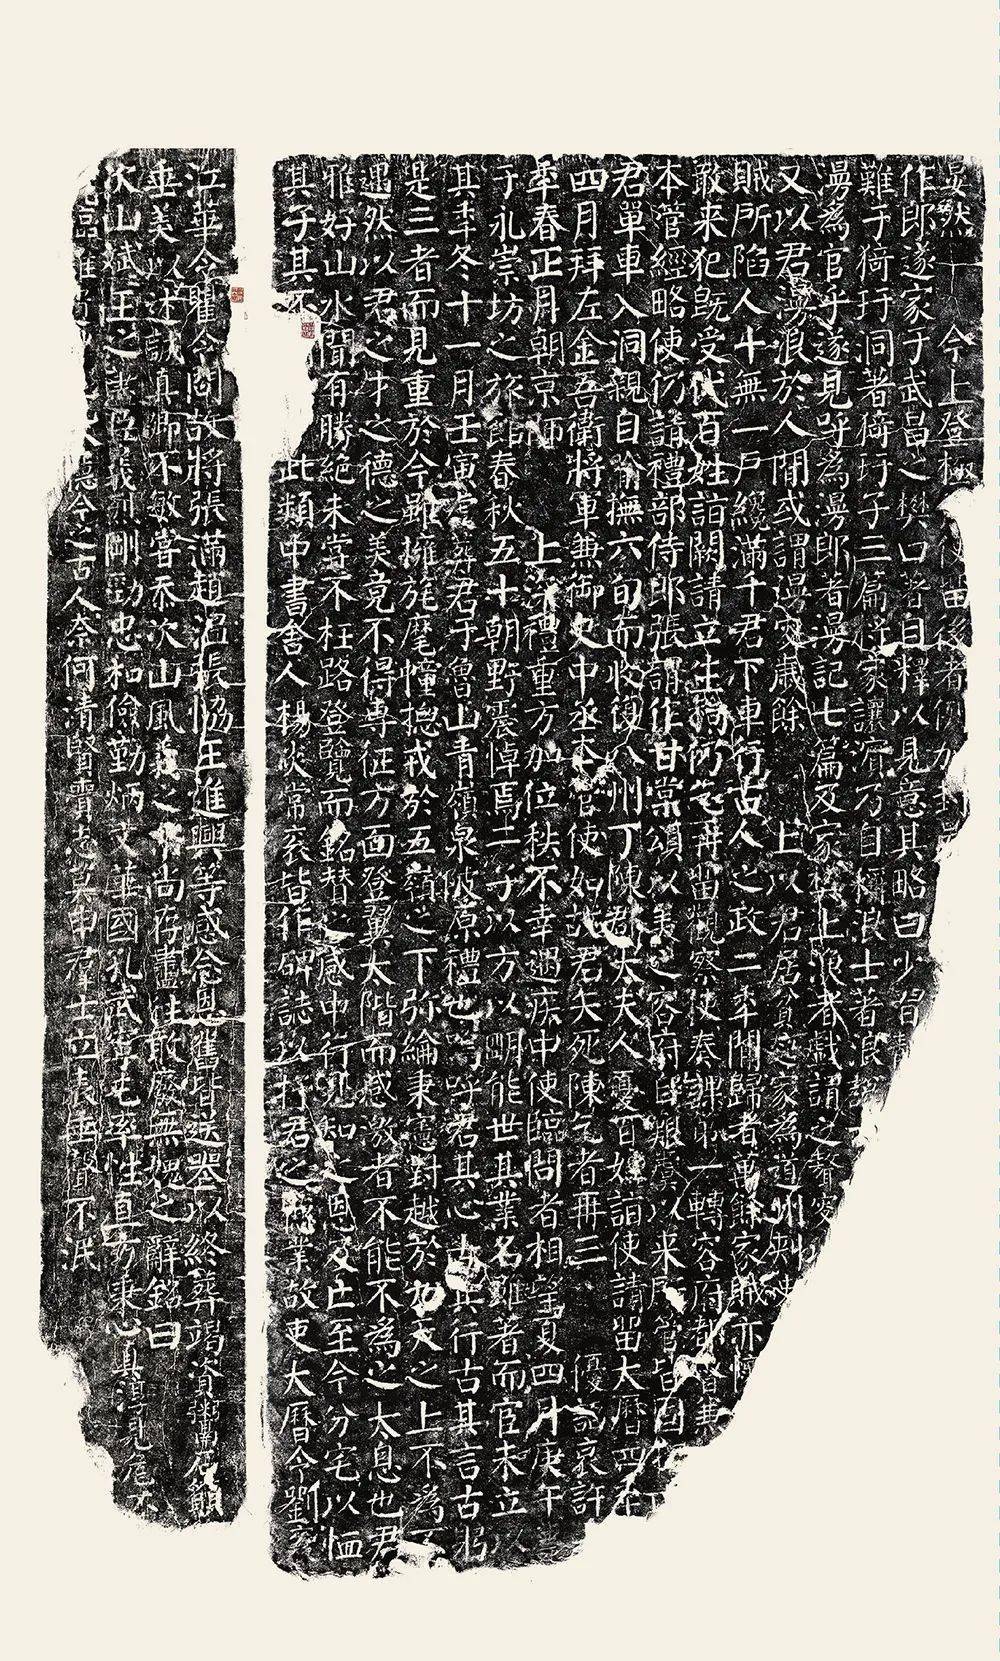 晏然十 今上登極 使留後者例加封
作郎遂家于武昌之樊口著自釋以見意其略曰少習
難于猗玗洞著猗玗子三篇將家讓濱乃自稱浪士著浪說
漫爲官乎遂見呼爲漫郎著漫記七篇及家 上浪者戲謂之聱叟
又以君漫浪於人間或謂漫叟歲餘 上以君居貧起家爲道州刺史
賊所陷人十無一戶纔滿千君下車行古人之政二年間歸者萬餘家賊亦懷
敢来犯旣受代百姓詣闕請立生祠仍乞再留觀察使奏課第一轉容府都督兼
本管經略使仍請禮部侍郎張謂作甘棠頌以美之容府自艱虞以来所管皆固
君單車入洞親自喻撫六旬而收復八州丁陳郡太夫人憂百姓詣使請留大曆四年
四月拜左金吾衛將軍兼御史中丞本管使如故君矢死陳乞者再三 優詔哀許
年春正月朝京師 上深禮重方加位秩不幸遇疾中使臨問者相望夏四月庚午
于永崇坊之旅館春秋五十朝野震悼焉二子以方以明能世其業名雖著而官未立以
其年冬十一月壬寅虔葬君于魯山青嶺泉陂原禮也嗚呼君其心古其行古其言古躬
是三者而見重於今雖擁旄麾幢揔戎於五嶺之下弥綸秉憲對越於九天之上不爲不
遇然以君之才之德之美竟不得專征方面登翼太階而感激者不能不爲之太息也君
雅好山水聞有勝絶未嘗不枉路登覽而銘贊之感中行見知之恩及亡至今分宅以恤
其子其不 此類中書舍人楊炎常衮皆作碑誌以抒君之德業故吏大曆令劉衮
江華令瞿令問故將張滿趙温張協王進興等感念恩舊皆送喪以終葬竭資鬻石願
垂美以述誠真卿不敏嘗忝次山風義之末尚存盡往敢廢無媿之辭銘曰
次山斌斌王之藎臣義烈剛勁忠和儉勤炳文華國孔武寧屯率性直方秉心真淳見危不
臨難 德今之古人奈何清賢賫志莫申羣士立表垂聲不泯